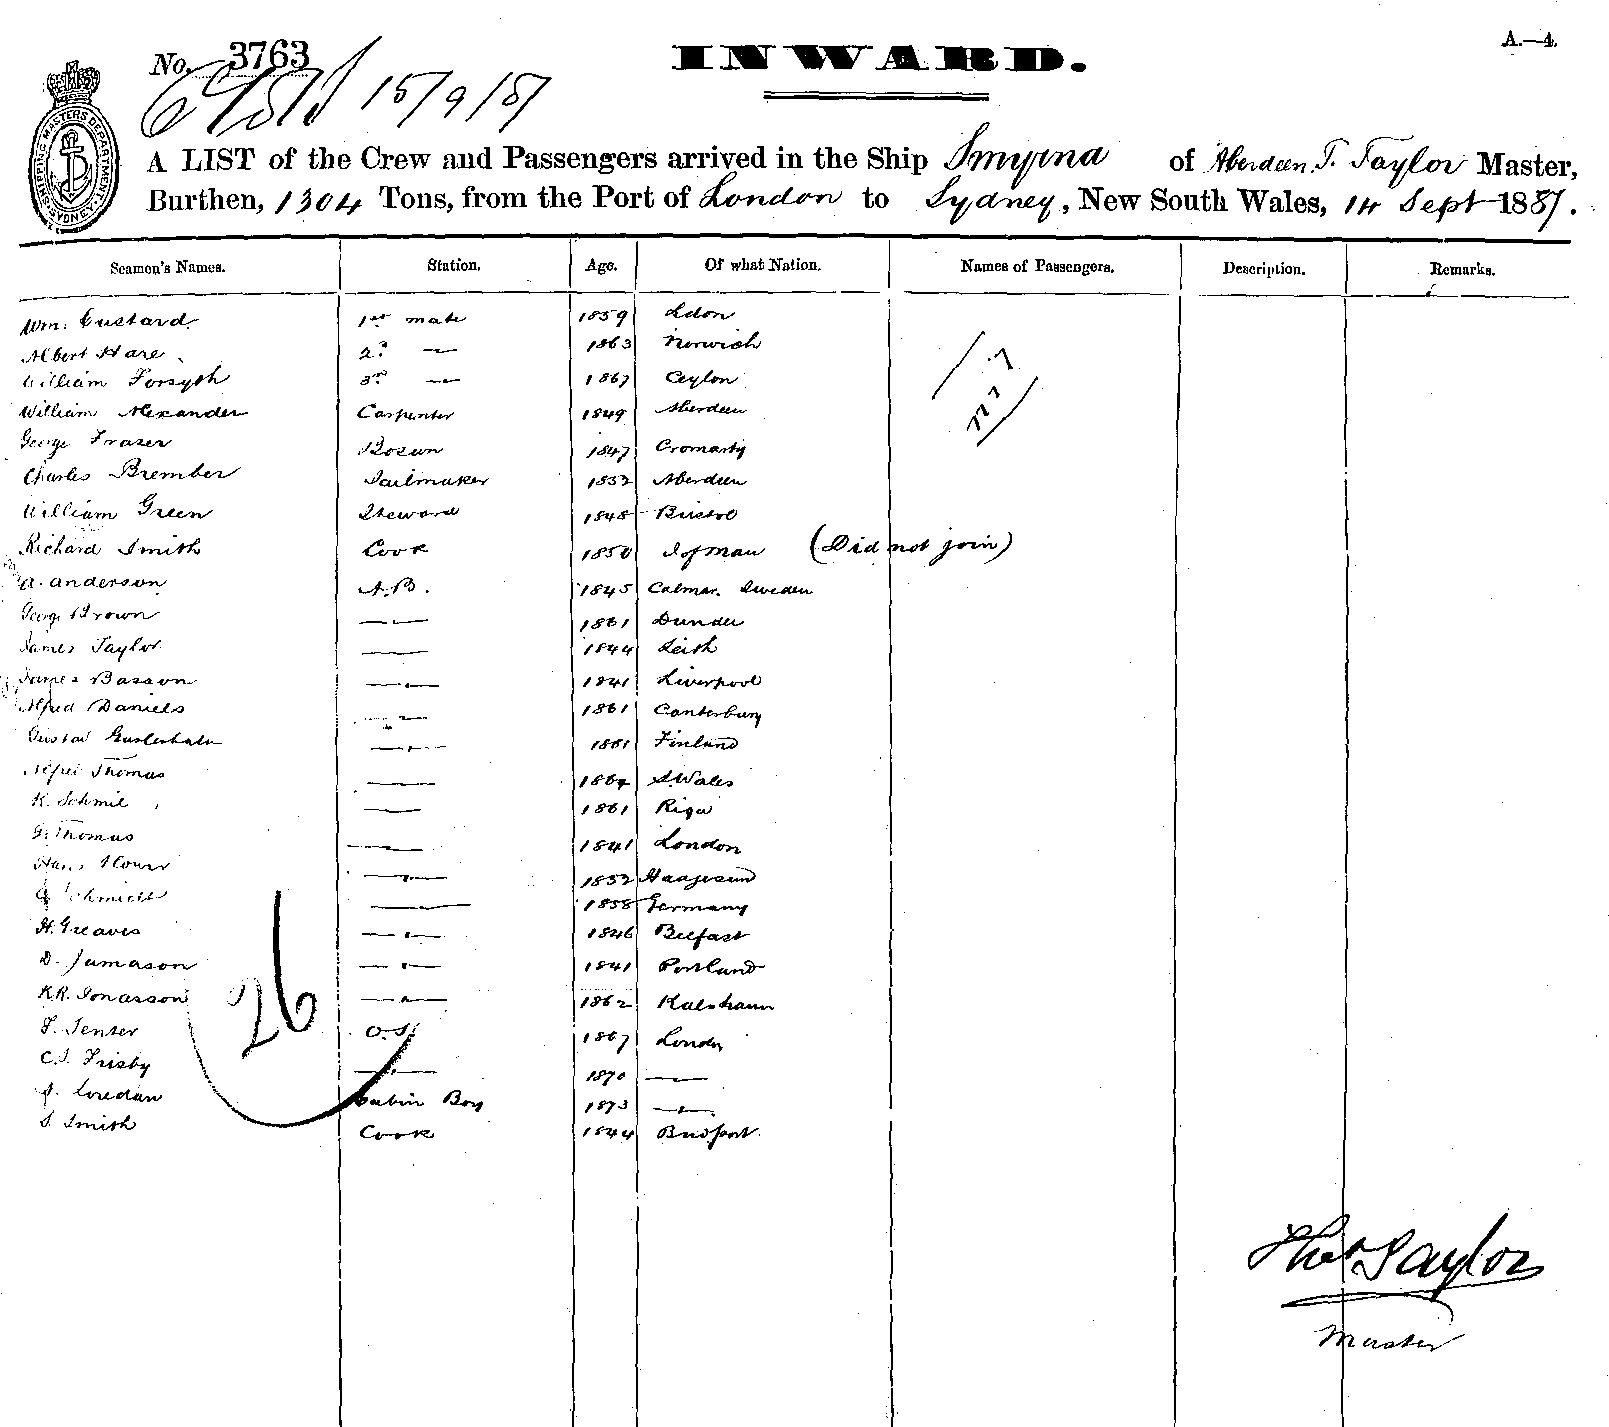 No. 3763
INWARD.
A.—4.
15/9/87
SHIPPING MASTERS DEPARTMENT SYDNEY
A LIST of the Crew and Passengers arrived in the Ship Smyrna of Aberdeen. T. Taylor Master,
Burthen, 1304 Tons, from the Port of London to Sydney, New South Wales, 14 Sept 1887.
Seamen's Names. Station. Age. Of what Nation. Names of Passengers. Description. Remarks.
Wm. Custard 1st mate 1859 Ldon
Albert Hare 2d — 1863 Norwich
William Forsyth 3rd — 1867 Ceylon
William Alexander Carpenter 1849 Aberdeen
George Fraser Bosun 1847 Cromarty
Charles Brember Sailmaker 1832 Aberdeen
William Green Steward 1848 Bristol
Richard Smith Cook 1850 I of Man (Did not join)
A. Anderson A.B. 1845 Calmar. Sweden
George Brown — 1861 Dundee
James Taylor — 1844 Leith
James Basson — 1841 Liverpool
Alfred Daniels — 1861 Canterbury
— 1861 Finland
Thomas — 1864 S. Wales
K. Schmil — 1861 Riga
G. Thomas — 1841 London
— 1852
Schmidt — 1858 Germany
H. Greaves — 1846 Belfast
D. Jamason — 1841 Portland
K.R. Jonasson — 1862
26
F. Senter O.S. 1867 London
C.J. Frisby — 1870 —
J. Loredan Cabin Boy 1873 —
S. Smith Cook 1844 Bridport
Thos Taylor
Master